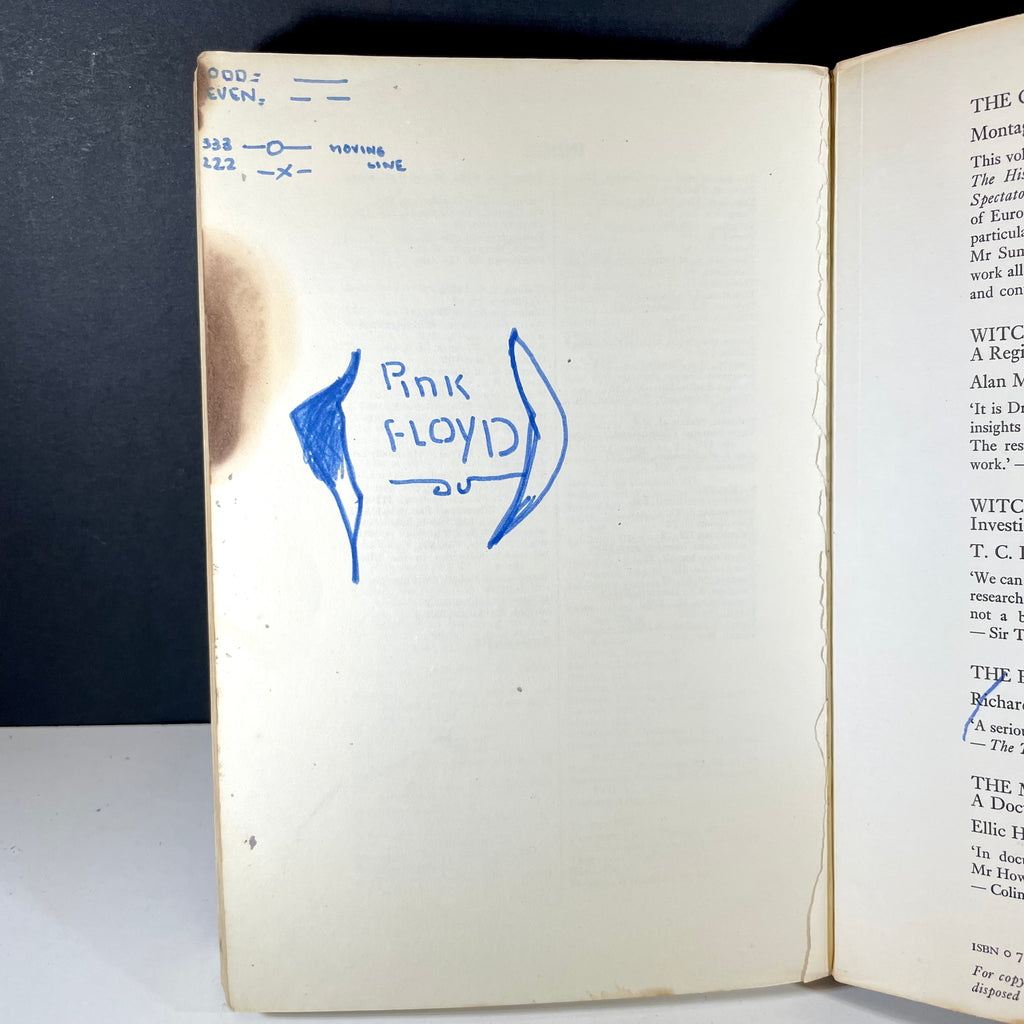 ODD=
EVEN=
333 MOVING
222 LINE
Pink
FLOYD
THE
Montag
This vol
The His
Spectato
of Euro
particula
Mr Sum
work all
and con
WITC
A Regi
Alan M
'It is Dr
insights
The res
work.' —
WITC
Investi
T. C. I
'We can
research
not a b
— Sir T
THE
Richar
'A seriou
— The T
THE M
A Doc
Ellic H
'In docu
Mr How
— Colin
ISBN 0 7
For copy
disposed